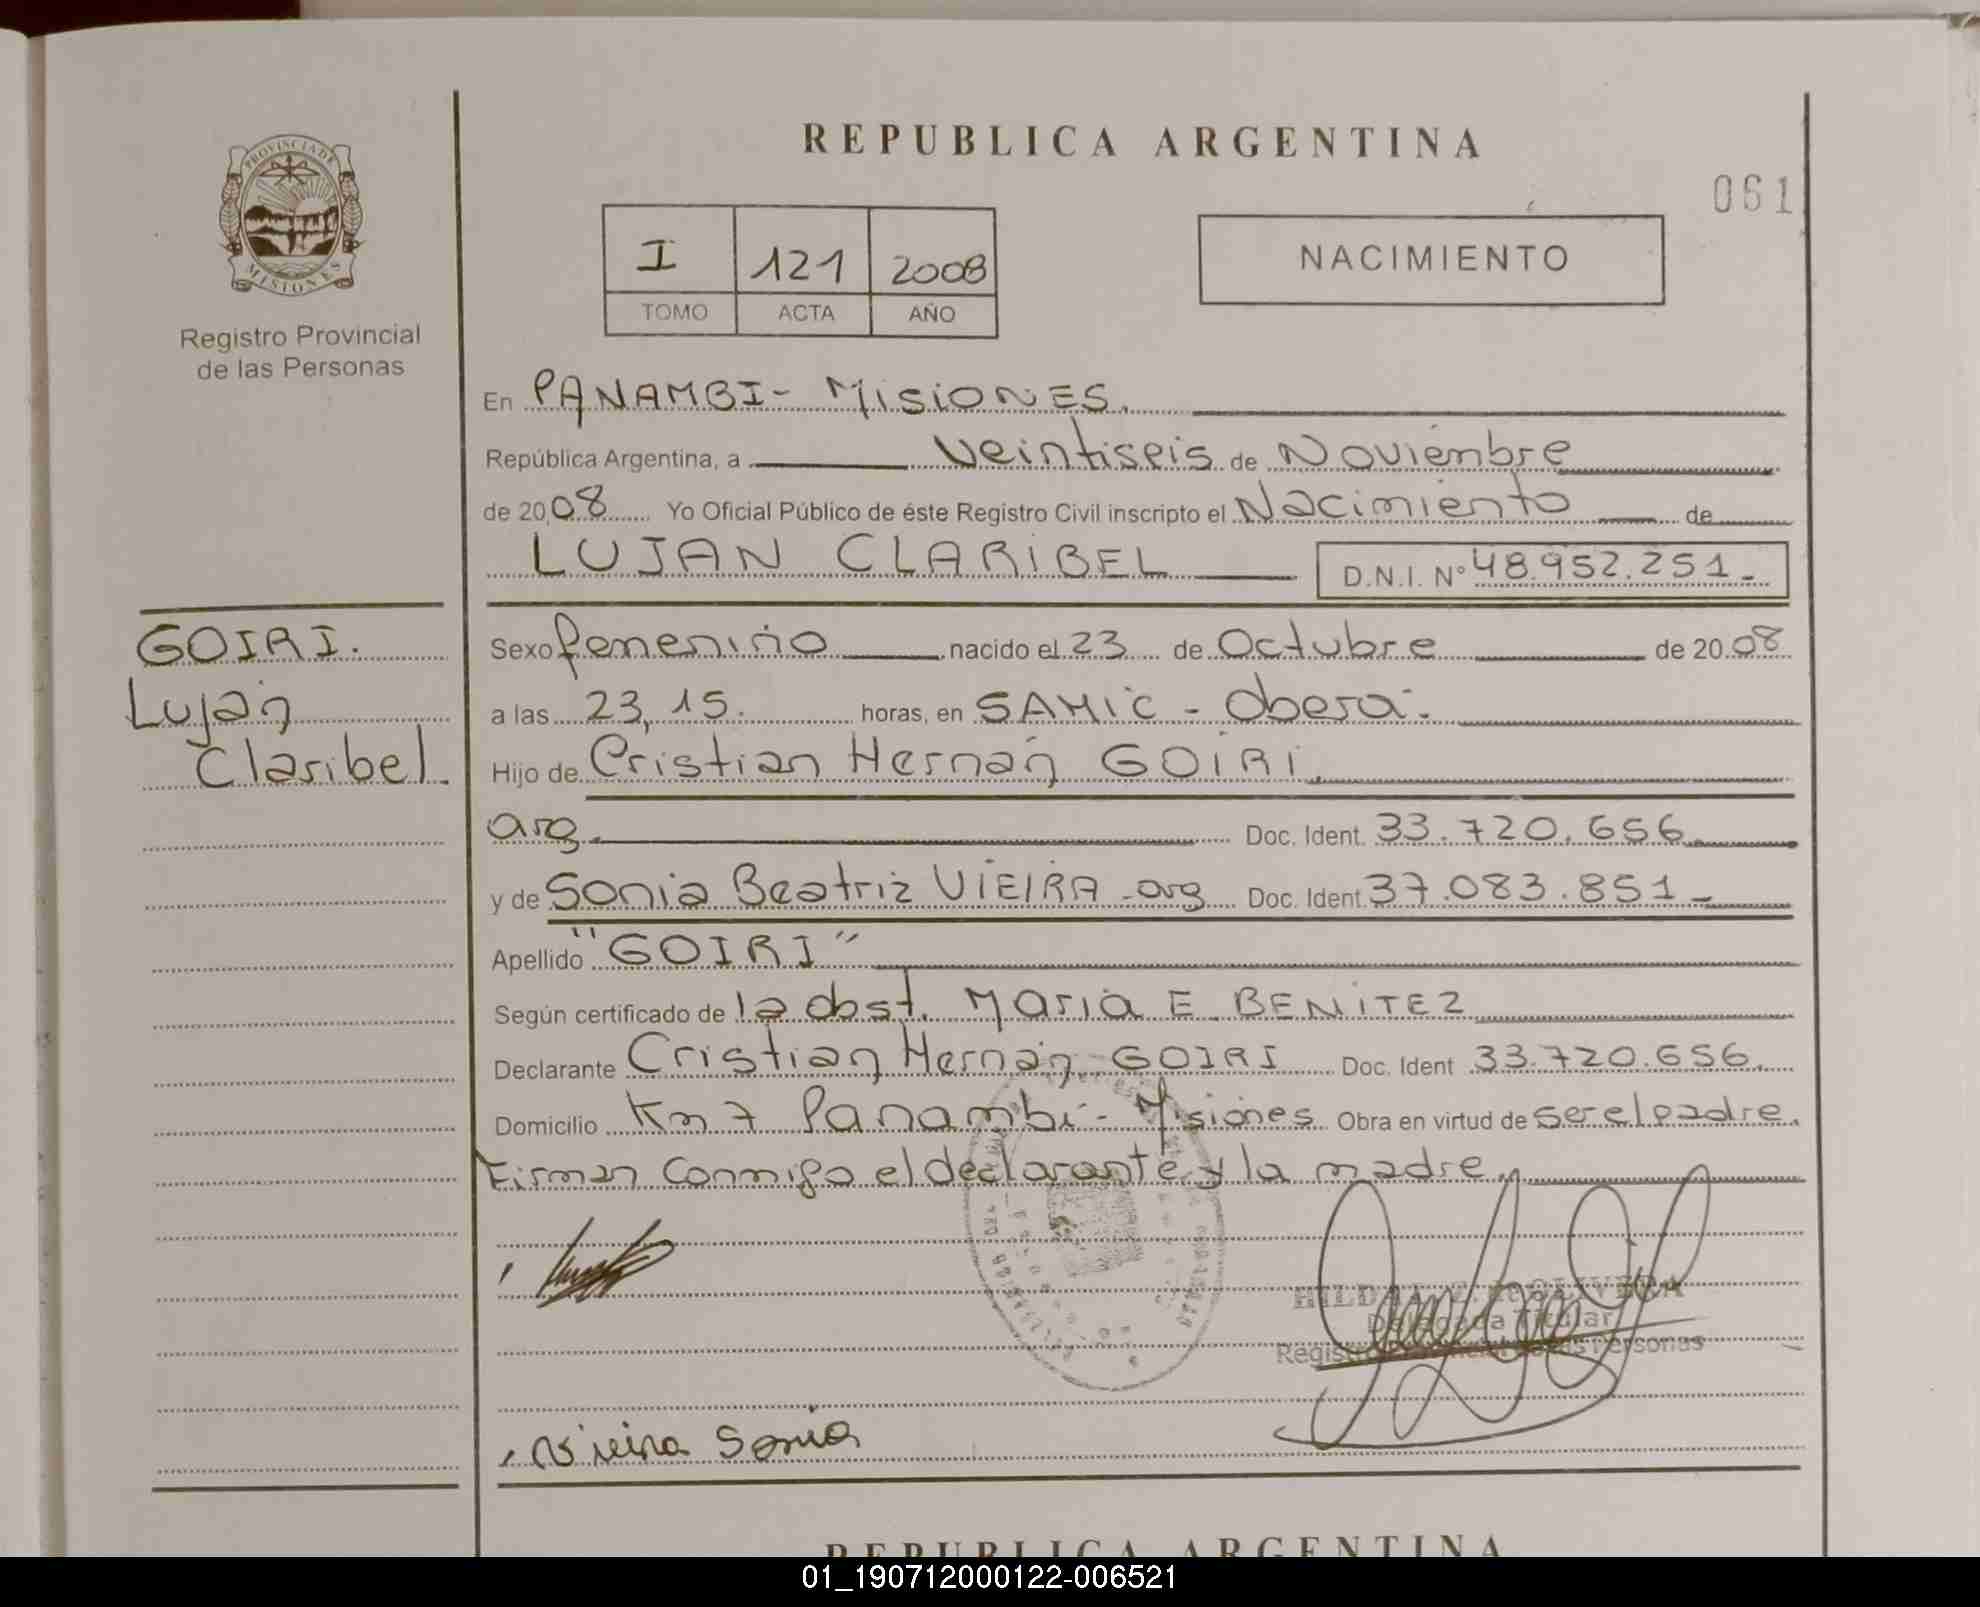 REPUBLICA ARGENTINA
061
PROVINCIA DE
MISIONES
Registro Provincial
de las Personas
I 121 2008
TOMO ACTA AÑO
NACIMIENTO
En PANAMBI - MISIONES.
República Argentina, a Veintiseis de Noviembre
de 2008 Yo Oficial Público de éste Registro Civil inscripto el Nacimiento de
LUJAN CLARIBEL D.N.I. Nº 48.952.251-
GOIRI.
Luján
Claribel.
Sexo femenino nacido el 23 de Octubre de 2008
a las 23,15. horas, en SAMIC - Oberá.
Hijo de Cristian Hernán GOIRI.
arg. Doc. Ident. 33.720.656
y de Sonia Beatriz VIEIRA - arg Doc. Ident. 37.083.851-
Apellido "GOIRI"
Según certificado de la obst. Maria E. BENITEZ
Declarante Cristian Hernán GOIRI Doc. Ident 33.720.656.
Domicilio Km 7 Panambí - Misiones Obra en virtud de ser el padre.
Firman conmigo el declarante y la madre.
OLIVERA
Delegada Titular
Registro Provincial de las Personas
Vieira Sonia
REPUBLICA ARGENTINA
01_190712000122-006521